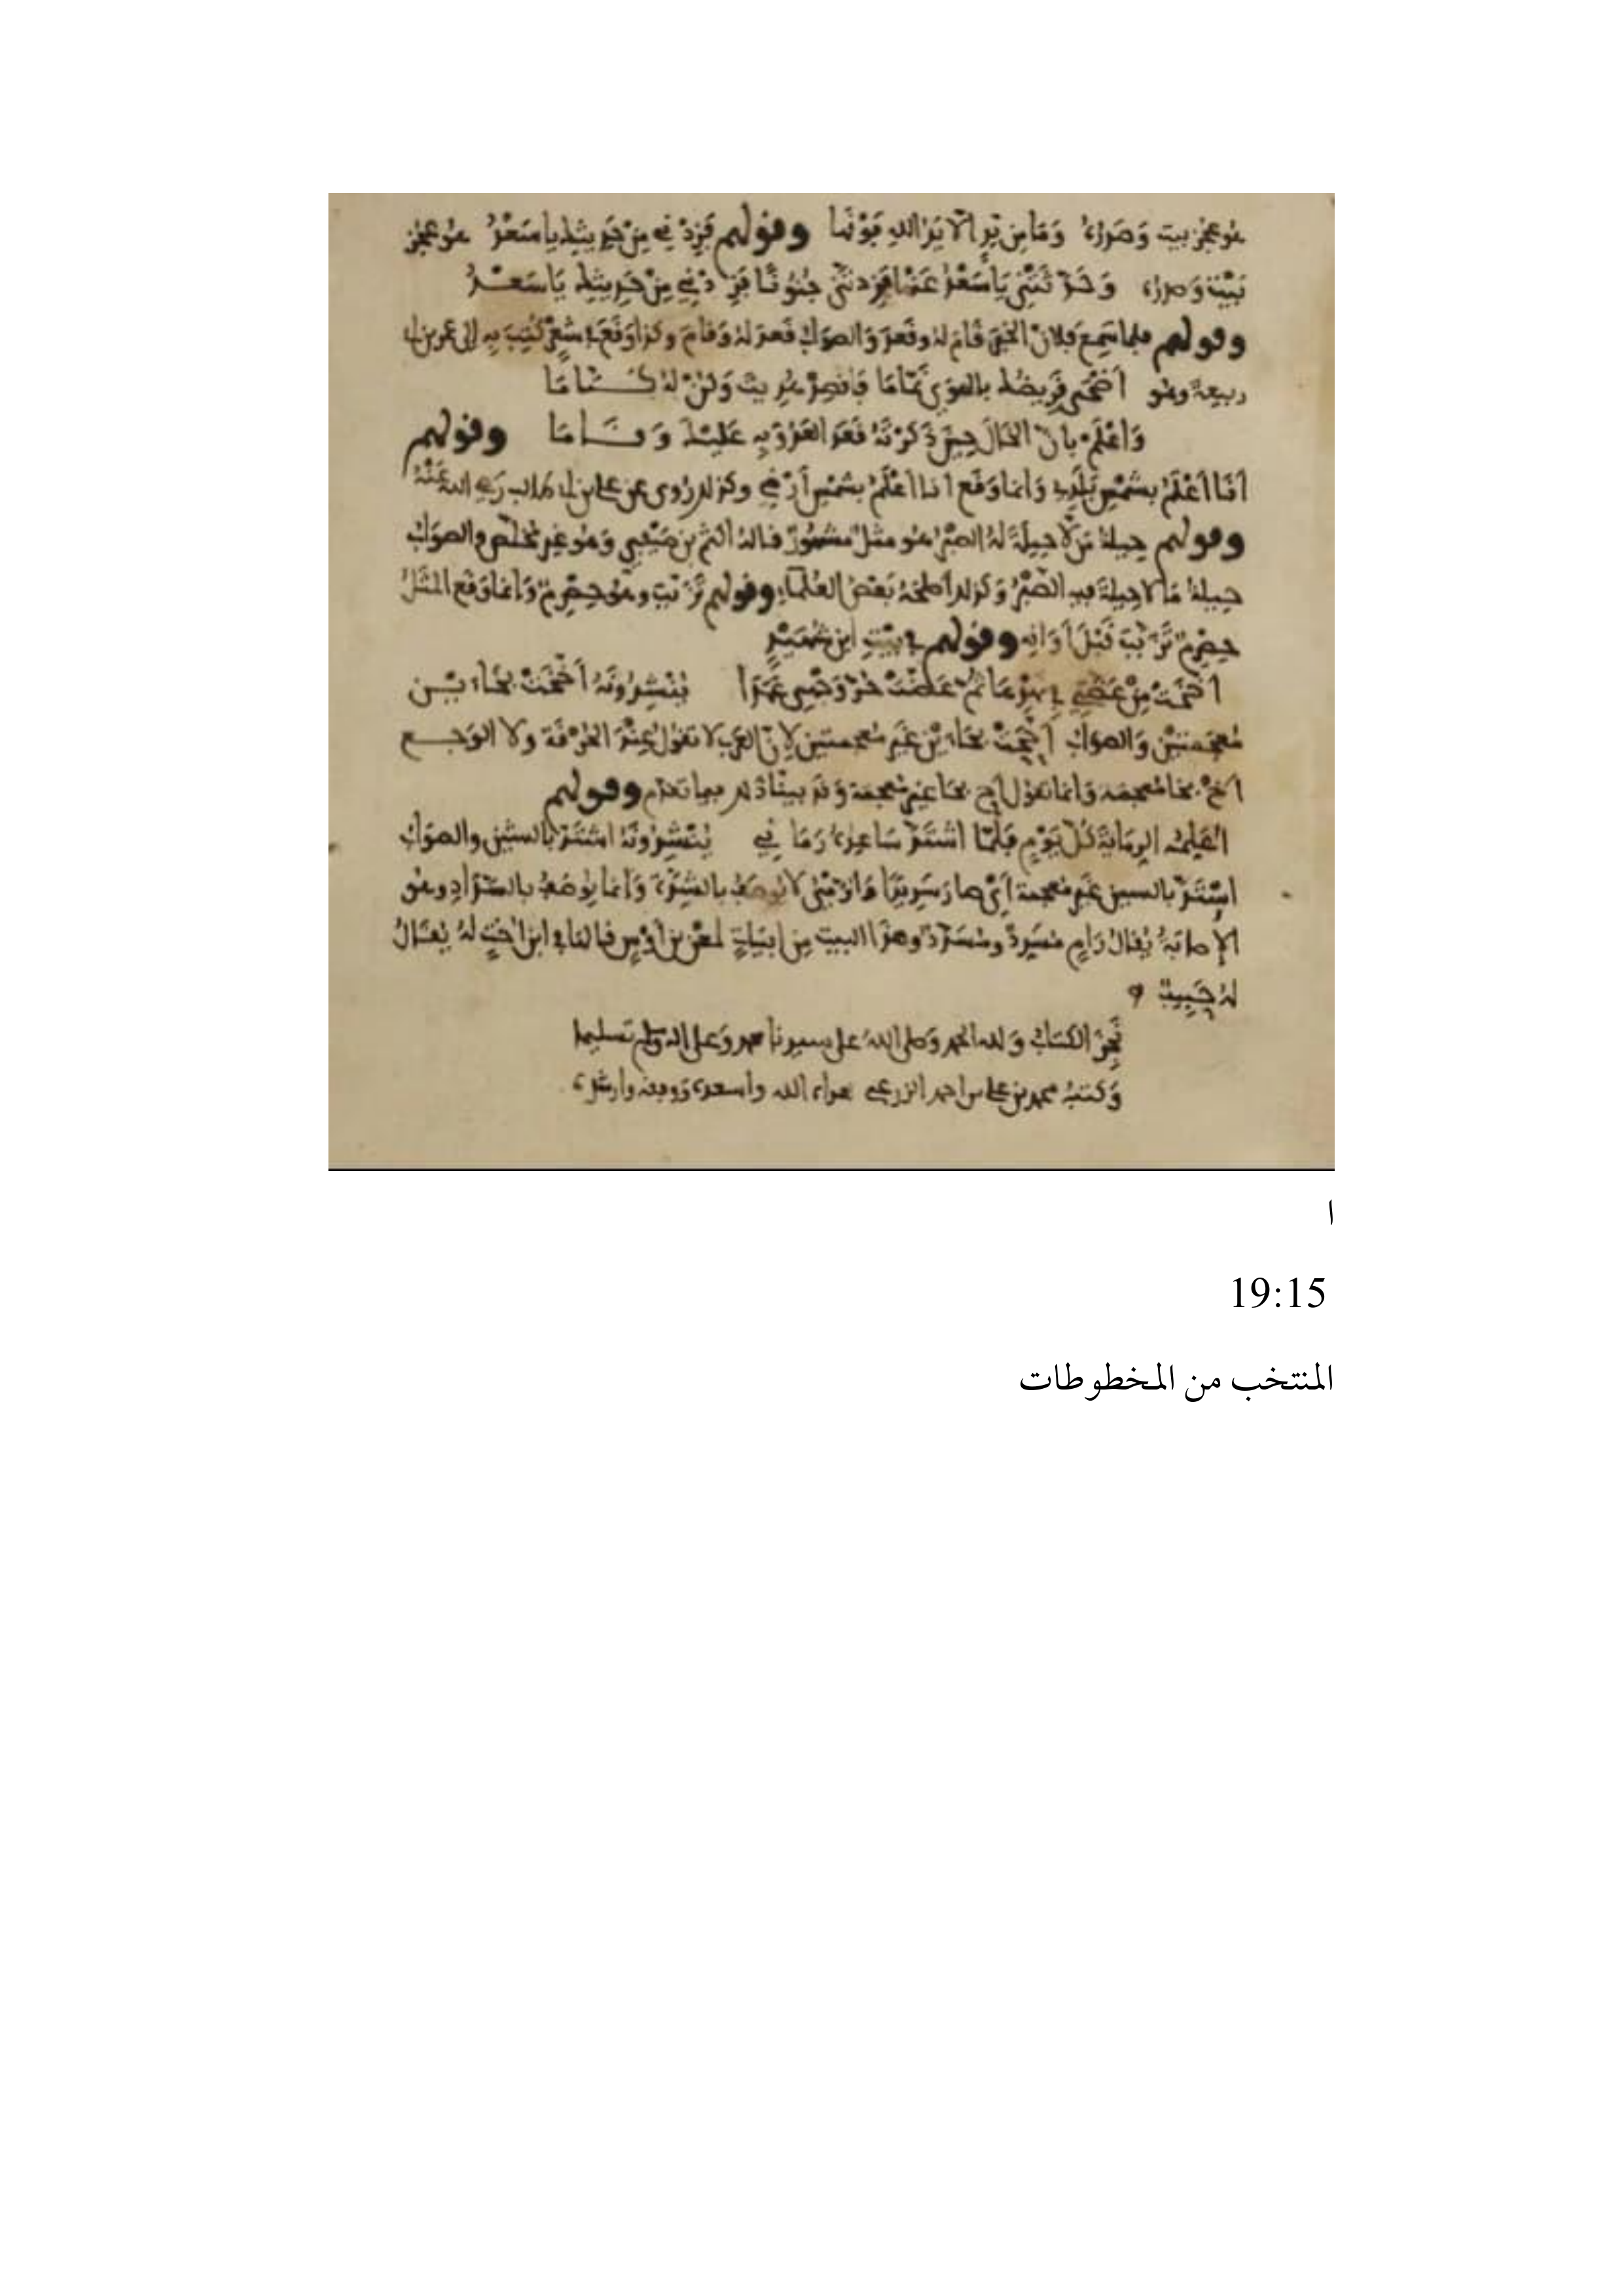 هو عجز بيت وصدره وما من يد الا يد الله فوقها وقولهم فزدني من حديثك يا سعد هو عجز
بيت وصدره وحدثتني يا سعد عنها فزدتني جنونا فزدني من حديثك يا سعد
وقولهم فلما سمع فلان الخبر قام له وقعد والصواب قعد له وقام وكذا وقع في شعر كتب به الى عمر بن ابي
ربيعة وهو أضحى قريضك بالهوى نماما فاقصد هديت وكن له كتاما
واعلم بأن الخال حين ذكرته قعد العدو به عليك وقاما وقولهم
أنا أعلم بشمس بلدي وانما وقع انا اعلم بشمس أرضي وكذلك روى عن علي بن ابي طالب رضي الله عنه
وقولهم حيلة من لا حيلة له الصبر هو مثل مشهور قاله اكثم بن صيفي وهو غير مخلص والصواب
حيلة ما لا حيلة فيه الصبر وكذلك اصلحه بعض العلماء وقولهم تزبب وهو حصرم وانما وقع المثل
حصرم تزبب قبل أوانه وقولهم في بيت ابن شهيد
أضحت من عضتي في نهدها ثم عضت حر وجهي عمدا ينشدونه أضحت بخاءين
معجمتين والصواب أححت بحاءين غير معجمتين لأن العرب لا تقول عند الحرقة ولا الوجع
أخ بخا معجمة وانما تقول أح بحا غير معجمة وقد بينا ذلك فيما تقدم وقولهم
أعلمه الرماية كل يوم فلما اشتد ساعده رماني ينشدونه اشتد بالشين والصواب
استد بالسين غير معجمة أي صار سديدا والرمي لا يوصف بالشدة وانما يوصف بالسداد وهو
الإصابة يقال رام مسدد ومسدد وهذا البيت من ابيات لمعن بن أوس قالها في ابن اخت له يقال
له حبيب
نجز الكتاب ولله الحمد وصلى الله على سيدنا محمد وعلى اله وسلم تسليما
وكتبه محمد بن علي بن احمد هداه الله واسعده ووفقه وارشده
ا
19:15
المنتخب من المخطوطات